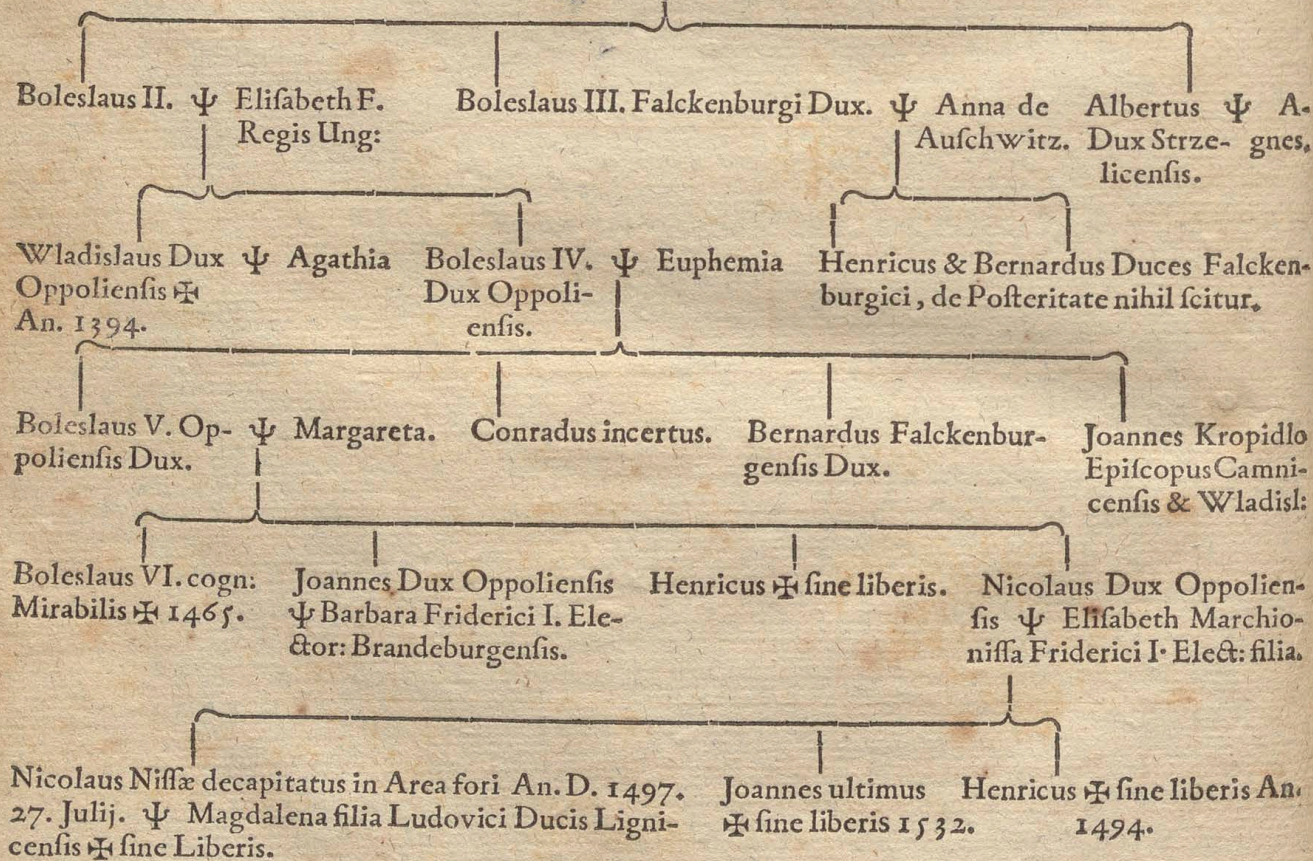 Boleslaus II. Ψ Eliſabeth F.
Regis Ung:
Boleslaus III. Falckenburgi Dux. Ψ Anna de
Auſchwitz.
Albertus Ψ A-
Dux Strze- gnes,
licenſis.
Wladislaus Dux Ψ Agathia
Oppolienſis ✠
An. 1394.
Boleslaus IV. Ψ Euphemia
Dux Oppoli-
enſis.
Henricus & Bernardus Duces Falcken-
burgici, de Poſteritate nihil ſcitur.
Boleslaus V. Op- Ψ Margareta.
polienſis Dux.
Conradus incertus.
Bernardus Falckenbur-
genſis Dux.
Joannes Kropidlo
Epiſcopus Camni-
cenſis & Wladisl:
Boleslaus VI. cogn:
Mirabilis ✠ 1465.
Joannes Dux Oppolienſis
Ψ Barbara Friderici I. Ele-
ctor: Brandeburgenſis.
Henricus ✠ ſine liberis.
Nicolaus Dux Oppolien-
ſis Ψ Eliſabeth Marchio-
niſſa Friderici I. Elect: filia.
Nicolaus Niſſæ decapitatus in Area fori An. D. 1497.
27. Julij. Ψ Magdalena filia Ludovici Ducis Ligni-
cenſis ✠ ſine Liberis.
Joannes ultimus
✠ ſine liberis 1532.
Henricus ✠ ſine liberis An.
1494.